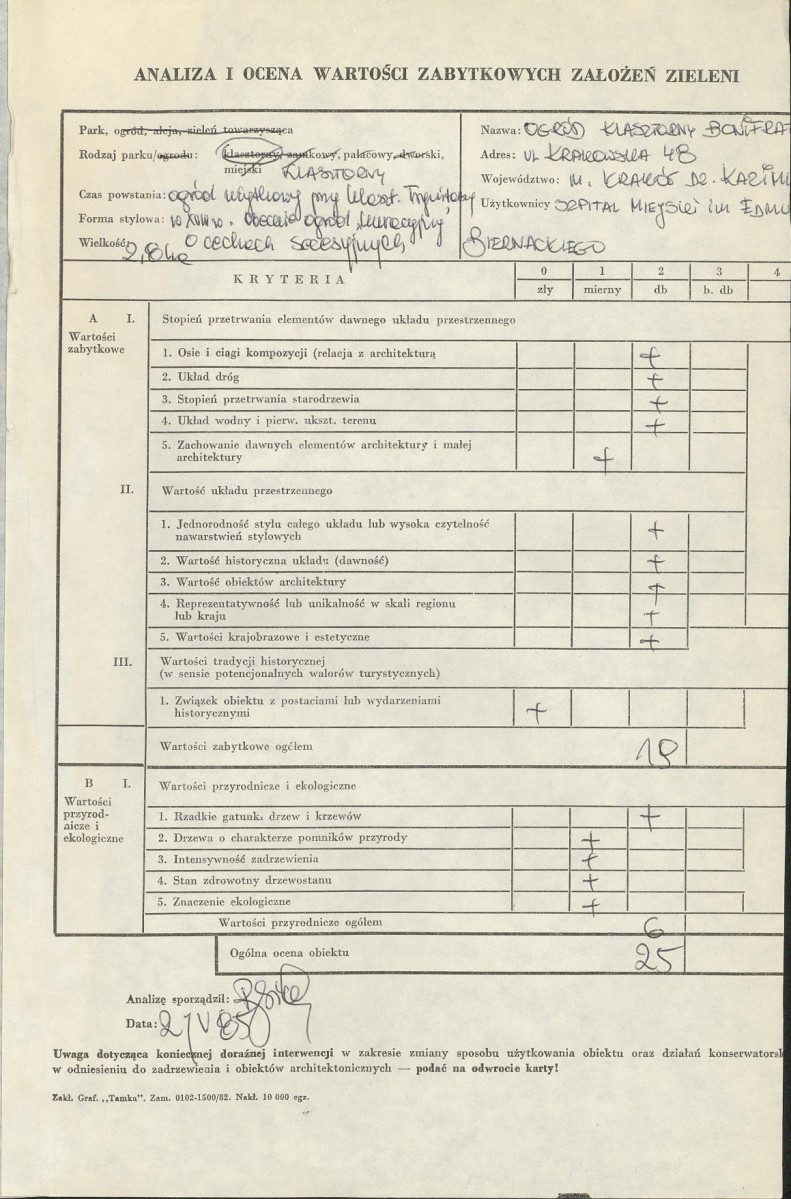 ANALIZA I OCENA WARTOŚCI ZABYTKOWYCH ZAŁOŻEŃ ZIELENI
Park, ogród, aleja, zieleń towarzysząca
Rodzaj parku/ogrodu: klasztorny, zamkowy, pałacowy, dworski,
miejski KLASZTORNY
Czas powstania: ogród użytkowy przy klaszt. Trynitarzy
Forma stylowa: w XVIII w. obecnie ogród „kuracyjny”
Wielkość: 2,8 ha o cechach secesyjnych
Nazwa: OGRÓD KLASZTORNY BONIFRAT
Adres: UL KRAKOWSKA 48
Województwo: M. KRAKÓW DZ. KAZIM
Użytkownicy SZPITAL MIEJSKI IM EDMU
BIERNACKIEGO
KRYTERIA
0 1 2 3 4
zły mierny db b. db
A I. Stopień przetrwania elementów dawnego układu przestrzennego
Wartości
zabytkowe
1. Osie i ciągi kompozycji (relacja z architekturą +
2. Układ dróg +
3. Stopień przetrwania starodrzewia +
4. Układ wodny i pierw. ukszt. terenu +
5. Zachowanie dawnych elementów architektury i małej
architektury +
II. Wartość układu przestrzennego
1. Jednorodność stylu całego układu lub wysoka czytelność
nawarstwień stylowych +
2. Wartość historyczna układu (dawność) +
3. Wartość obiektów architektury +
4. Reprezentatywność lub unikalność w skali regionu
lub kraju +
5. Wartości krajobrazowe i estetyczne +
III. Wartości tradycji historycznej
(w sensie potencjonalnych walorów turystycznych)
1. Związek obiektu z postaciami lub wydarzeniami
historycznymi +
Wartości zabytkowe ogółem 19
B I. Wartości przyrodnicze i ekologiczne
Wartości
przyrod-
nicze i
ekologiczne
1. Rzadkie gatunki drzew i krzewów +
2. Drzewa o charakterze pomników przyrody +
3. Intensywność zadrzewienia +
4. Stan zdrowotny drzewostanu +
5. Znaczenie ekologiczne +
Wartości przyrodnicze ogółem 6
Ogólna ocena obiektu 25
Analizę sporządził:
Data: 21 V 85
Uwaga dotycząca koniecznej doraźnej interwencji w zakresie zmiany sposobu użytkowania obiektu oraz działań konserwatorsk
w odniesieniu do zadrzewienia i obiektów architektonicznych — podać na odwrocie karty!
Zakł. Graf. „Tamka”. Zam. 0102-1500/82. Nakł. 10 000 egz.